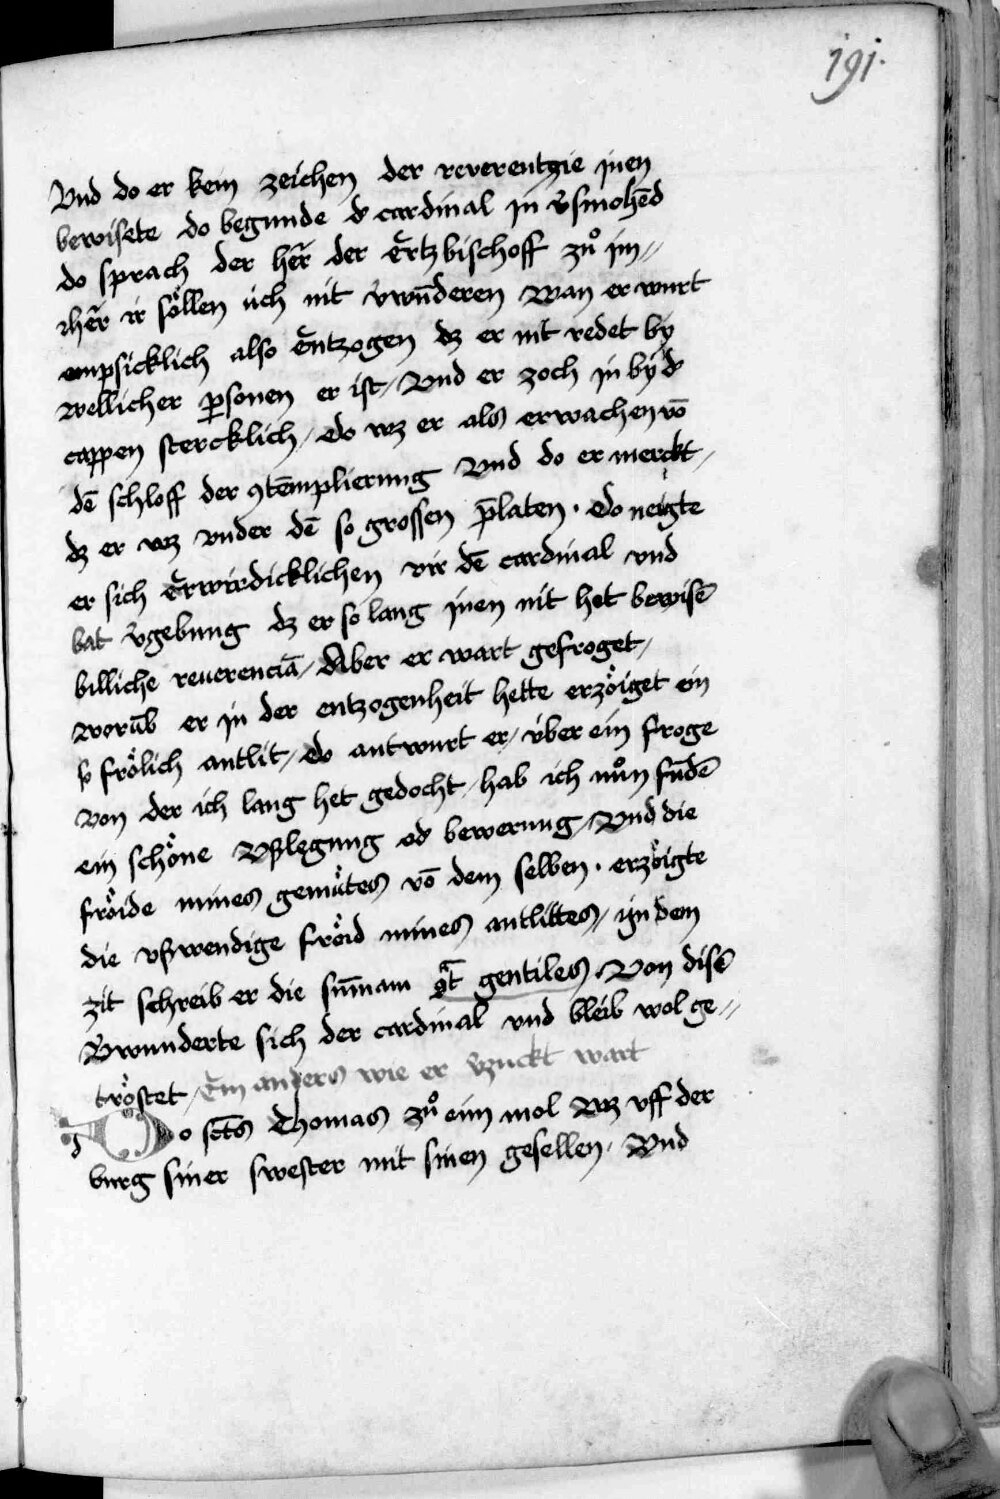 191.
Vnd do er kein zeichen der reverentzie jnen
bewisete do begunde d᷒ cardinal jn v̄smohēd
do sprach der her̄ der Ertzbischoff zů jm//
her̄ ir sǒllen úch nit v̄wūderen Wan er wurt
empsicklich also Entzogen dz er nit redet by
wellicher p̱sonen er ist / Vnd er zoch jn by d᷒
cappen stercklich / do wz er als erwachen vō
dē schloff der ꝯtēmplierung Vnd do er merckt /
dz er wz vnder dē so grossen p̄laten · do neigte
er sich Erwirdicklichen vir dē cardinal vnd
bat v̄gebung dz er so lang jnen nit het bewisē
billiche reuerenciā / Aber er wart gefroget /
worūb er jn der entzogenheit hette erzǒiget ein
so frǒlich antlit / do antwurt er / v́ber ein froge
Von der ich lang het gedocht / hab ich nůn fūdē
ein schǒne Vßlegung od᷒ bewerung / Vnd die
frǒide mines gemůtes vō dem selben · erzǒigte
die vßwendige frǒid mines antlittes / jn dem
zit schreib er die sūmam ꝯt̄ gentiles / Von disē
Vwunderte sich der cardinal vnd bleib wol ge//
trǒstet / Ein anders wie er v̄zuckt wart
Do sc̄ts Thomas zů eim mol wz vff der
burg siner swester mit sinen gesellen · Vnd